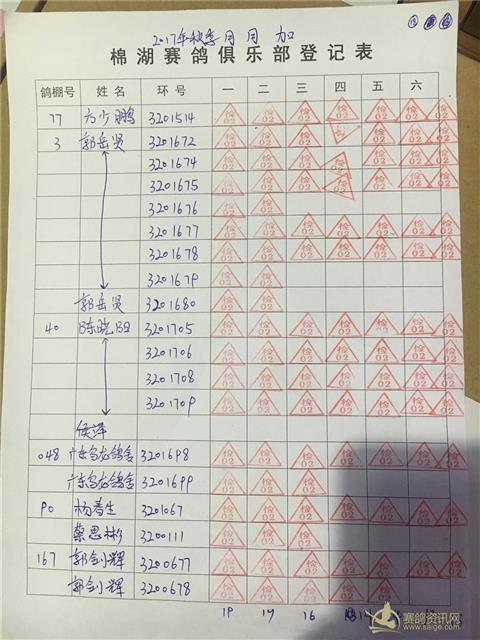 2017年秋季月月加
棉湖赛鸽俱乐部登记表
鸽棚号 姓名 环号 一 二 三 四 五 六
77 方少鹏 3201514 检02 检02 检02 检02 检02 检02
3 郭岳贤 3201672 检02 检02 检02 检02 检02
3201674 检02 检02 检02 检02 检02 检02
3201675 检02 检02 检02 检02 检02 检02
3201676 检02 检02
3201677 检02 检02 检02 检02 检02 检02
3201678 检02 检02 检02 检02 检02 检02
3201679 检02 检02
郭岳贤 3201680 检02 检02
40 陈晓阳 3201705 检02 检02 检02 检02 检02 检02
3201706 检02 检02 检02 检02 检02 检02
3201708 检02 检02 检02 检02 检02 检02
3201709 检02 检02 检02 检02 检02 检02
048 广东乌龙鸽舍 3201698 检02 检02 检02 检02 检02 检02
广东乌龙鸽舍 3201699 检02 检02 检02
90 杨春生 3201067 检02 检02 检02 检02 检02 检02
蔡思彬 3200111 检02 检02 检02
167 郭剑辉 3200677 检02 检02 检02 检02 检02 检02
郭剑辉 3200678 检02 检02 检02 检02 检02 检02
19 17 16
赛鸽资讯网
www.saige.com